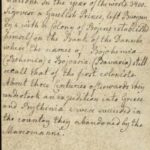 in the year of the world 3400.
Sigovese a Gaulish Prince, left
by with a Colony of Bojens established
himself on the Bank of the Danube
where the names of Bojohemia
(Bohemia) & Bojaria (Bavaria) still
recall that of the first colonists
about three centuries afterwards they
undertook an expedition into Greece
and Scythenia & were succeeded in
the country they abandoned by the
Marcomanne.